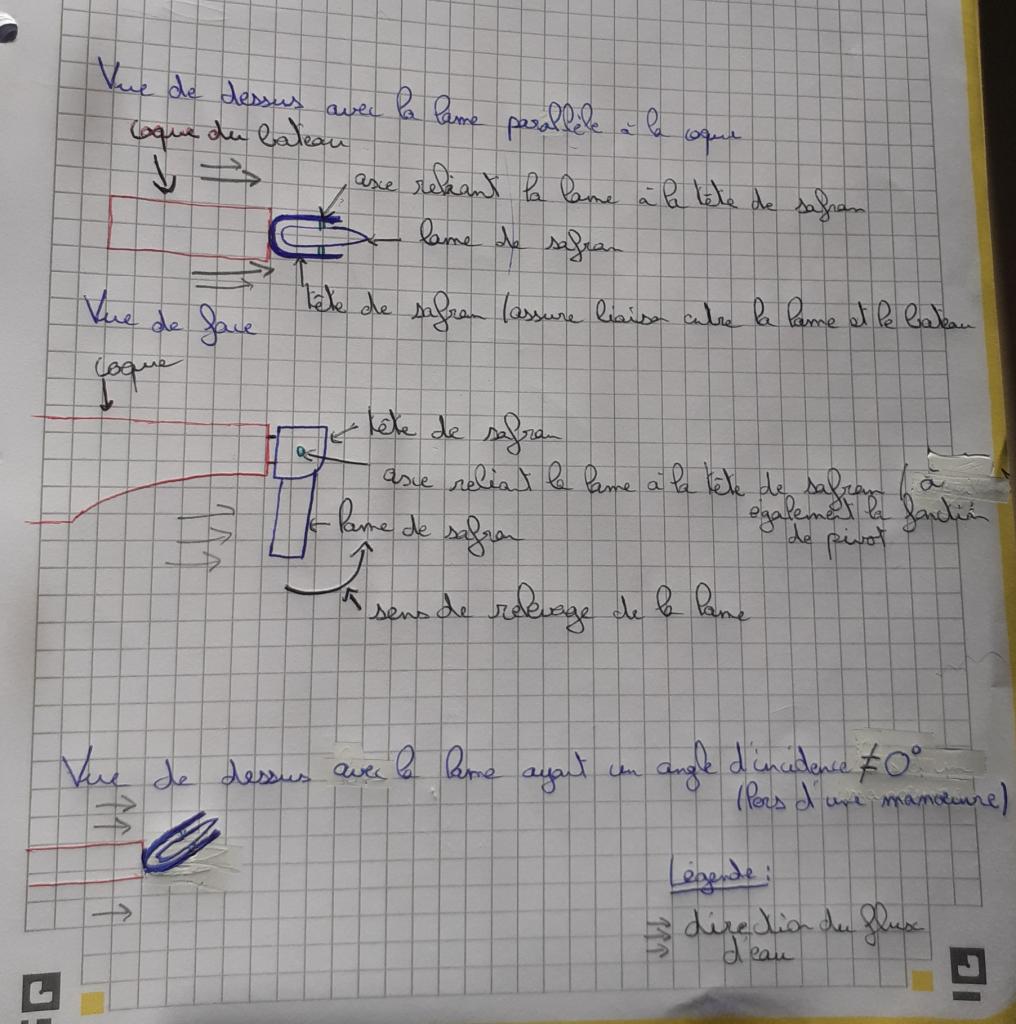 Vue de dessus avec la lame parallèle à la coque
coque du bateau
axe reliant la lame à la tête de safran
lame de safran
tête de safran (assure liaison entre la lame et le bateau
Vue de face
coque
tête de safran
axe reliat la lame à la tête de safran (à
également la fonction
de pivot
lame de safran
sens de relevage de la lame
Vue de dessus avec la lame ayant un angle d'incidence ≠0°
(lors d'une manœuvre)
Légende:
direction du flux
d'eau